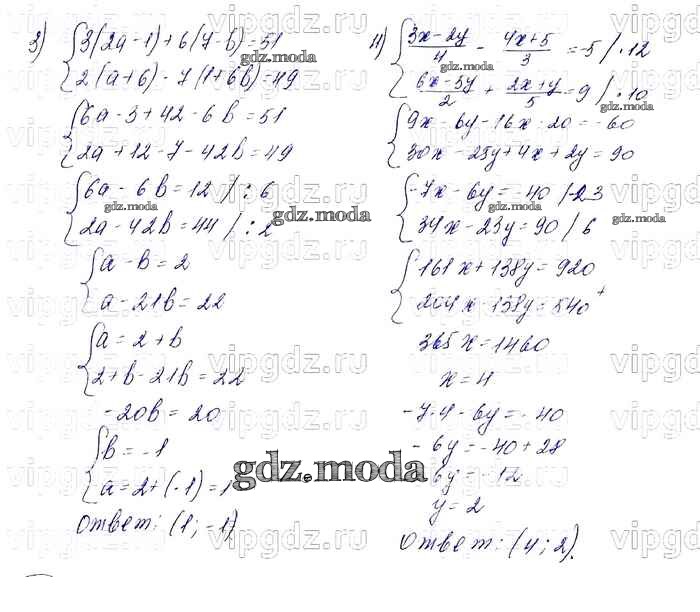 3) { 3(2a-1)+6(7-b)=51
{ 2(a+6)-7(1+6b)=49
{ 6a-3+42-6b=51
{ 2a+12-7-42b=49
{ 6a-6b=12 /:6
{ 2a-42b=44 /:2
{ a-b=2
{ a-21b=22
{ a=2+b
{ 2+b-21b=22
-20b=20
{ b=-1
{ a=2+(-1)=1
Ответ: (1;-1)
{ (3x-2y)/4 - (4x+5)/3 = -5 /·12
{ (6x-5y)/2 + (2x+y)/5 = 9 /·10
{ 9x-6y-16x-20=-60
{ 30x-25y+4x+2y=90
{ -7x-6y=-40 /-23
{ 34x-23y=90 /6
{ 161x+138y=920
{ 204x-138y=540 +
365x=1460
x=4
-7·4-6y=-40
-6y=-40+28
6y=12
y=2
Ответ: (4;2).
gdz.moda
gdz.moda
gdz.moda
gdz.moda
gdz.moda
gdz.moda
gdz.moda
vipgdz.ru